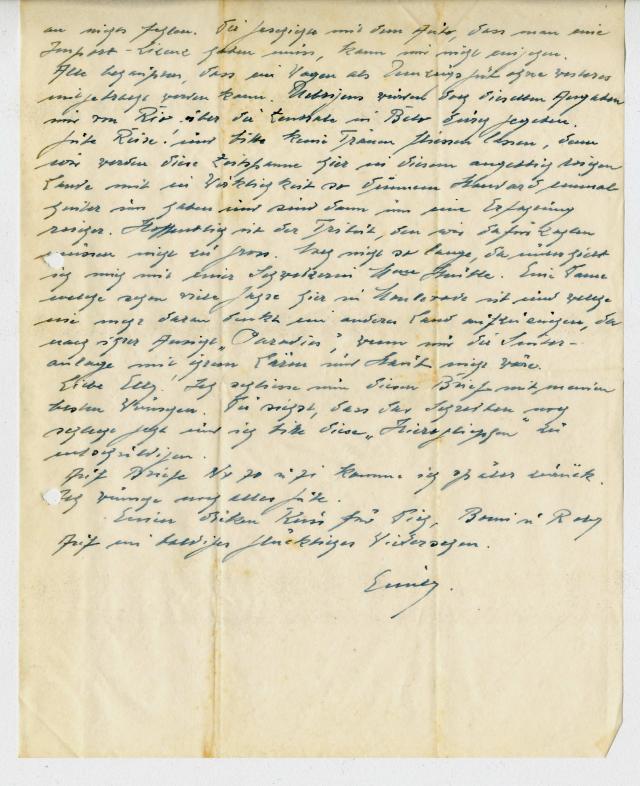 an nichts fehlen. Die Geschichte mit dem Auto, dass man eine
Import-Lizenz haben muss, kann mir nicht
Alle begreifen, dass ein Wagen als Umzugsgut ohne weiteres
mitgebracht werden kann. Uebrigens würden doch dieselben Ausgaben
nur von Rio über die Zentrale in Belo
Gute Reise! und bitte keine Tränen fliessen lassen, denn
wir werden diese Zeitspanne hier in diesem
Lande mit in Wirklichkeit so dünnem Standard einmal
hinter uns haben und sind dann um eine Erfahrung
reicher. Hoffentlich ist der Tribut, den wir dafür zahlen
müssen nicht zu gross. Noch nicht so lange, da unterhielt
ich mich mit einer Schweizerin Eine Dame
welche schon viele Jahre hier in Monlevade ist und welche
nie mehr daran denkt ein anderes Land aufzusuchen, da
nach ihrer Ansicht „Paradies", wenn nur die Sinter-
anlage mit ihrem Lärm und Staub nicht wäre.
Liebe Elly! Ich schliesse nun diesen Brief mit meinen
besten Wünschen. Du siehst, dass das Schreiben noch
schlecht geht und ich bitte diese zu
entschuldigen.
Auf Briefe Nr 70 u 71 komme ich später zurück.
Ich wünsche noch alles Gute.
Einen dicken Kuss für Dich, u Roby
Auf ein baldiges glückliches Wiedersehen.